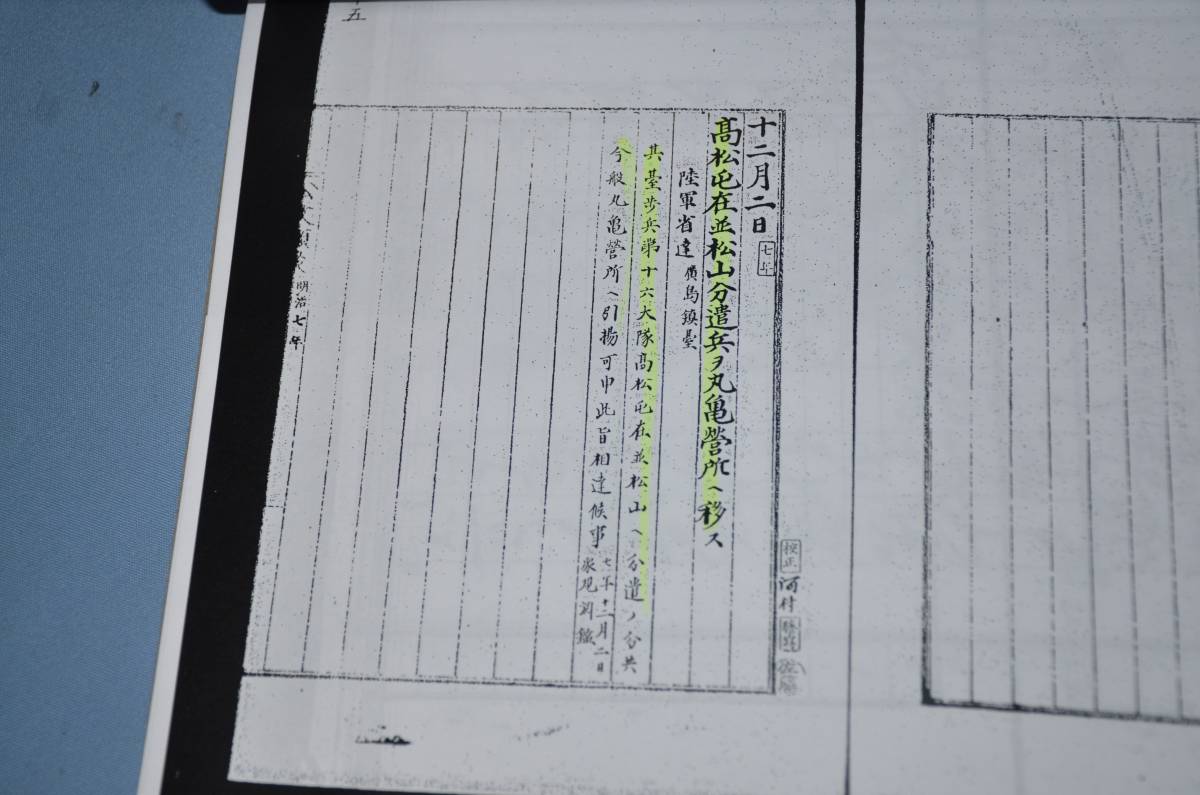 十二月二日 七年
高松屯在並松山分遣兵ヲ丸亀營所ヘ移ス
陸軍省達 廣島鎮臺
其臺歩兵第十六大隊高松屯在並松山ヘ分遣ノ分共
今般丸亀營所ヘ引揚可申此旨相達候事 七年十二月二日
校正 河村
明治七年
五